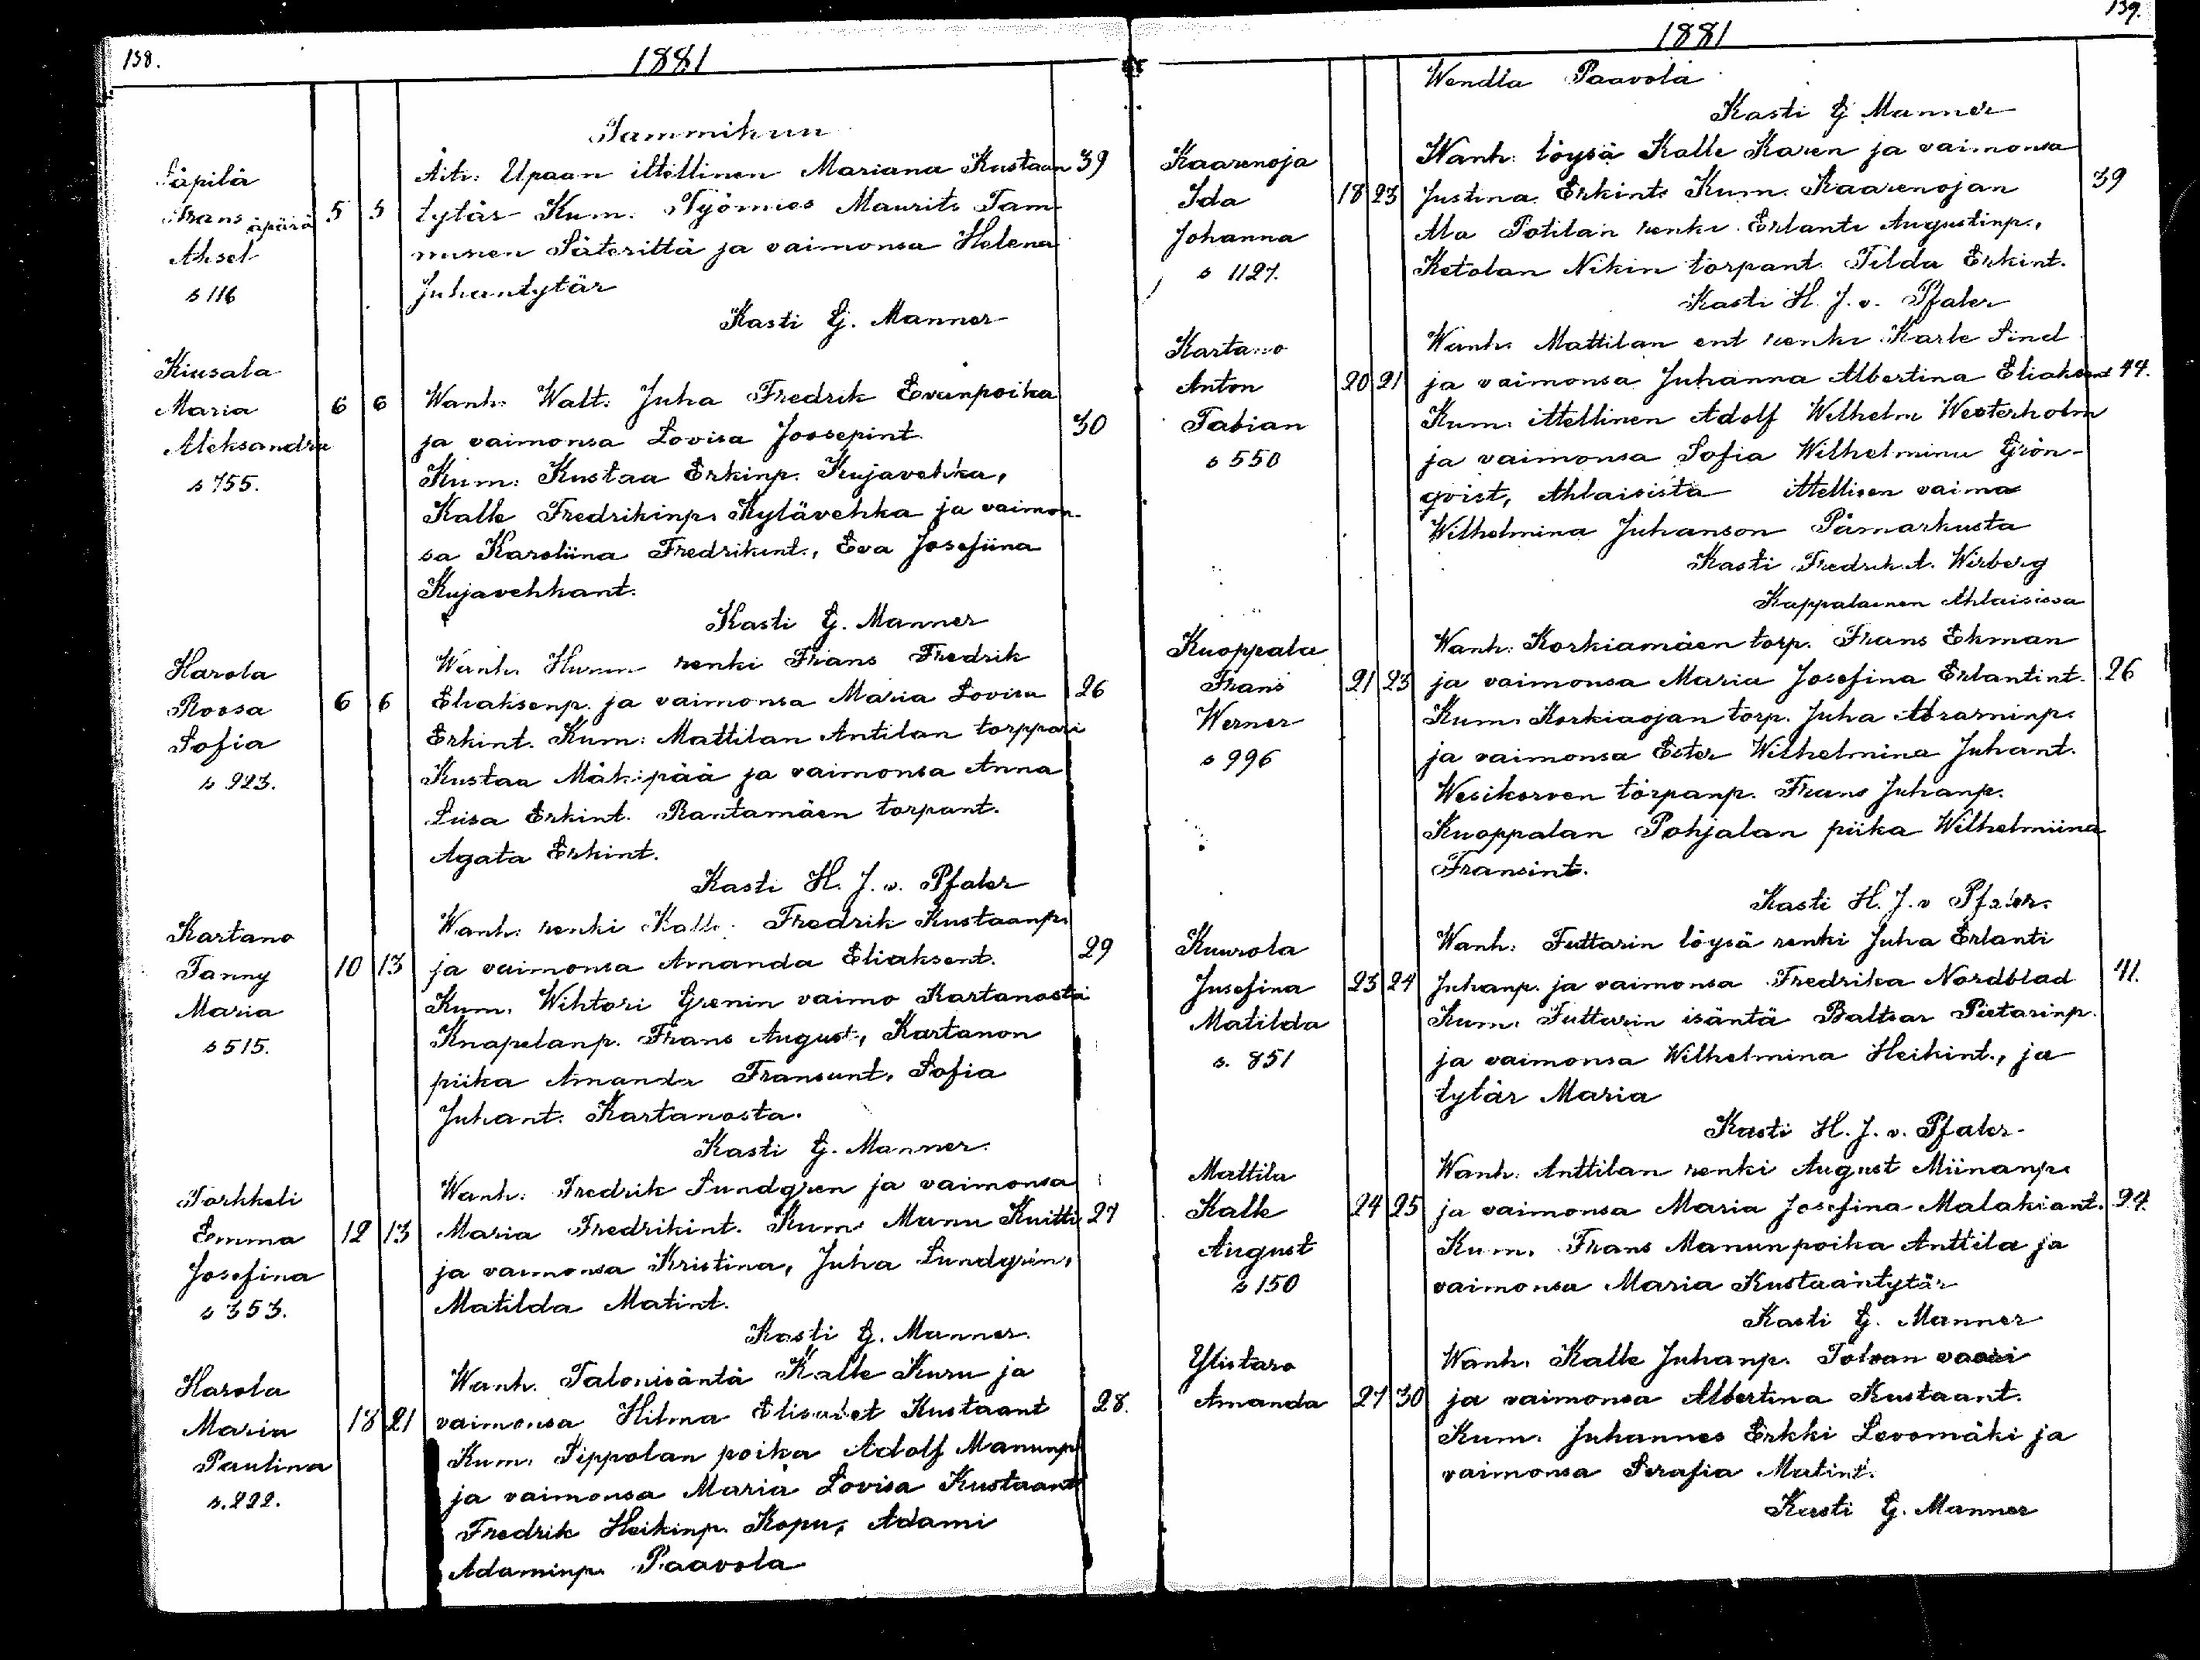 138.
1881
Tammikuu
Säpilä
Frans äpärä
Aksel
s 116
5 5
Äit: Upaan ittellinen Mariana Kustaan 39
tytär Kum. Työmies Maurits Tam
minen Säterittä ja vaimonsa Helena
Juhantytär
Kasti G. Manner
Kiusala
Maria
Aleksandra
s 755.
6 6
Wanh: Walt: Juha Fredrik Evanpoika
ja vaimonsa Lovisa Joosepint. 30
Kum: Kustaa Erkinp. Kujavehka,
Kalle Fredrikinp. Kylävehka ja vaimon-
sa Karoliina Fredrikint., Eva Josefiina
Kujavehkant.
Kasti G. Manner
Harola
Roosa
Sofia
s 923.
6 6
Wanh. renki Frans Fredrik
Eliaksenp. ja vaimonsa Maria Lovisa 26
Erkint. Kum: Mattilan Antilan torppari
Kustaa Mäkipää ja vaimonsa Anna
Liisa Erkint. Rantamäen torpant.
Agata Erkint.
Kasti H. J. v. Pfaler
Kartano
Fanny
Maria
s 515.
10 13
Wanh: renki Kalle Fredrik Kustaanp.
ja vaimonsa Amanda Eliaksent. 29
Kum. Wihtori Grenin vaimo Kartanosta
Knapelanp. Frans August, Kartanon
piika Amanda Fransunt, Sofia
Juhant. Kartanosta.
Kasti G. Manner.
Torkkeli
Emma
Josefina
s 353.
12 13
Wanh: Fredrik Lundgren ja vaimonsa
Maria Fredrikint. Kum: Manu Knitti 27
ja vaimonsa Kristina, Juha Lundgrén,
Matilda Matint.
Kasti G. Manner.
Harola
Maria
Paulina
s. 222.
18 21
Wanh. Talonisäntä Kalle Kuru ja
vaimonsa Hilma Elisabet Kustaant 28.
Kum. Sippolan poika Adolf Manunp
ja vaimonsa Maria Lovisa Kustaant
Fredrik Heikinp. Kopu, Adami
Adaminp. Paavola
139.
1881
Wendla Paavola
Kasti G Manner
Kaarenoja
Ida
Johanna
s 1127.
18 23
Wanh: löysä Kalle Karen ja vaimonsa
Justina Erkint. Kum. Kaarenojan 39
Ala Potilan renki Erlanti Augustinp.,
Ketolan Nikin torpant. Tilda Erkint.
Kasti H. J. v. Pfaler
Kartano
Anton
Fabian
s 550
20 21
Wanh: Mattilan ent renki Karle Lind
ja vaimonsa Juhanna Albertina Eliaksent 44.
Kum. ittellinen Adolf Wilhelm Westerholm
ja vaimonsa Sofia Wilhelmina Grön-
qvist, Ahlaisista ittellisen vaimo
Wilhelmina Juhanson Påmarkusta
Kasti Fredrik A. Wirberg
Kappalainen Ahlaisissa
Kuoppala
Frans
Werner
s 996
21 23
Wanh: Korkiamäen torp. Frans Ekman
ja vaimonsa Maria Josefina Erlantint. 26
Kum. Korkiaojan torp. Juha Abraminp.
ja vaimonsa Ester Wilhelmina Juhant.
Wesikorven torpanp. Frans Juhanp.
Kuoppalan Pohjalan piika Wilhelmiina
Fransint.
Kasti H. J. v Pfaler.
Kuurola
Jusefina
Matilda
s. 851
23 24
Wanh: Futtarin löysä renki Juha Erlanti
Juhanp. ja vaimonsa Fredrika Nordblad 41.
Kum. Futtarin isäntä Baltsar Pietarinp.
ja vaimonsa Wilhelmina Heikint., ja
tytär Maria
Kasti H. J. v. Pfaler.
Mattila
Kalle
August
s 150
24 25
Wanh: Anttilan renki August Miinanp.
ja vaimonsa Maria Josefina Malakiant. 24.
Kum. Frans Manunpoika Anttila ja
vaimonsa Maria Kustaantytär
Kasti G. Manner
Ylistaro
Amanda
27 30
Wanh. Kalle Juhanp. Tolvan vaari
ja vaimonsa Albertina Kustaant.
Kum. Juhannes Erkki Levomäki ja
vaimonsa Serafia Matint.
Kasti G. Manner